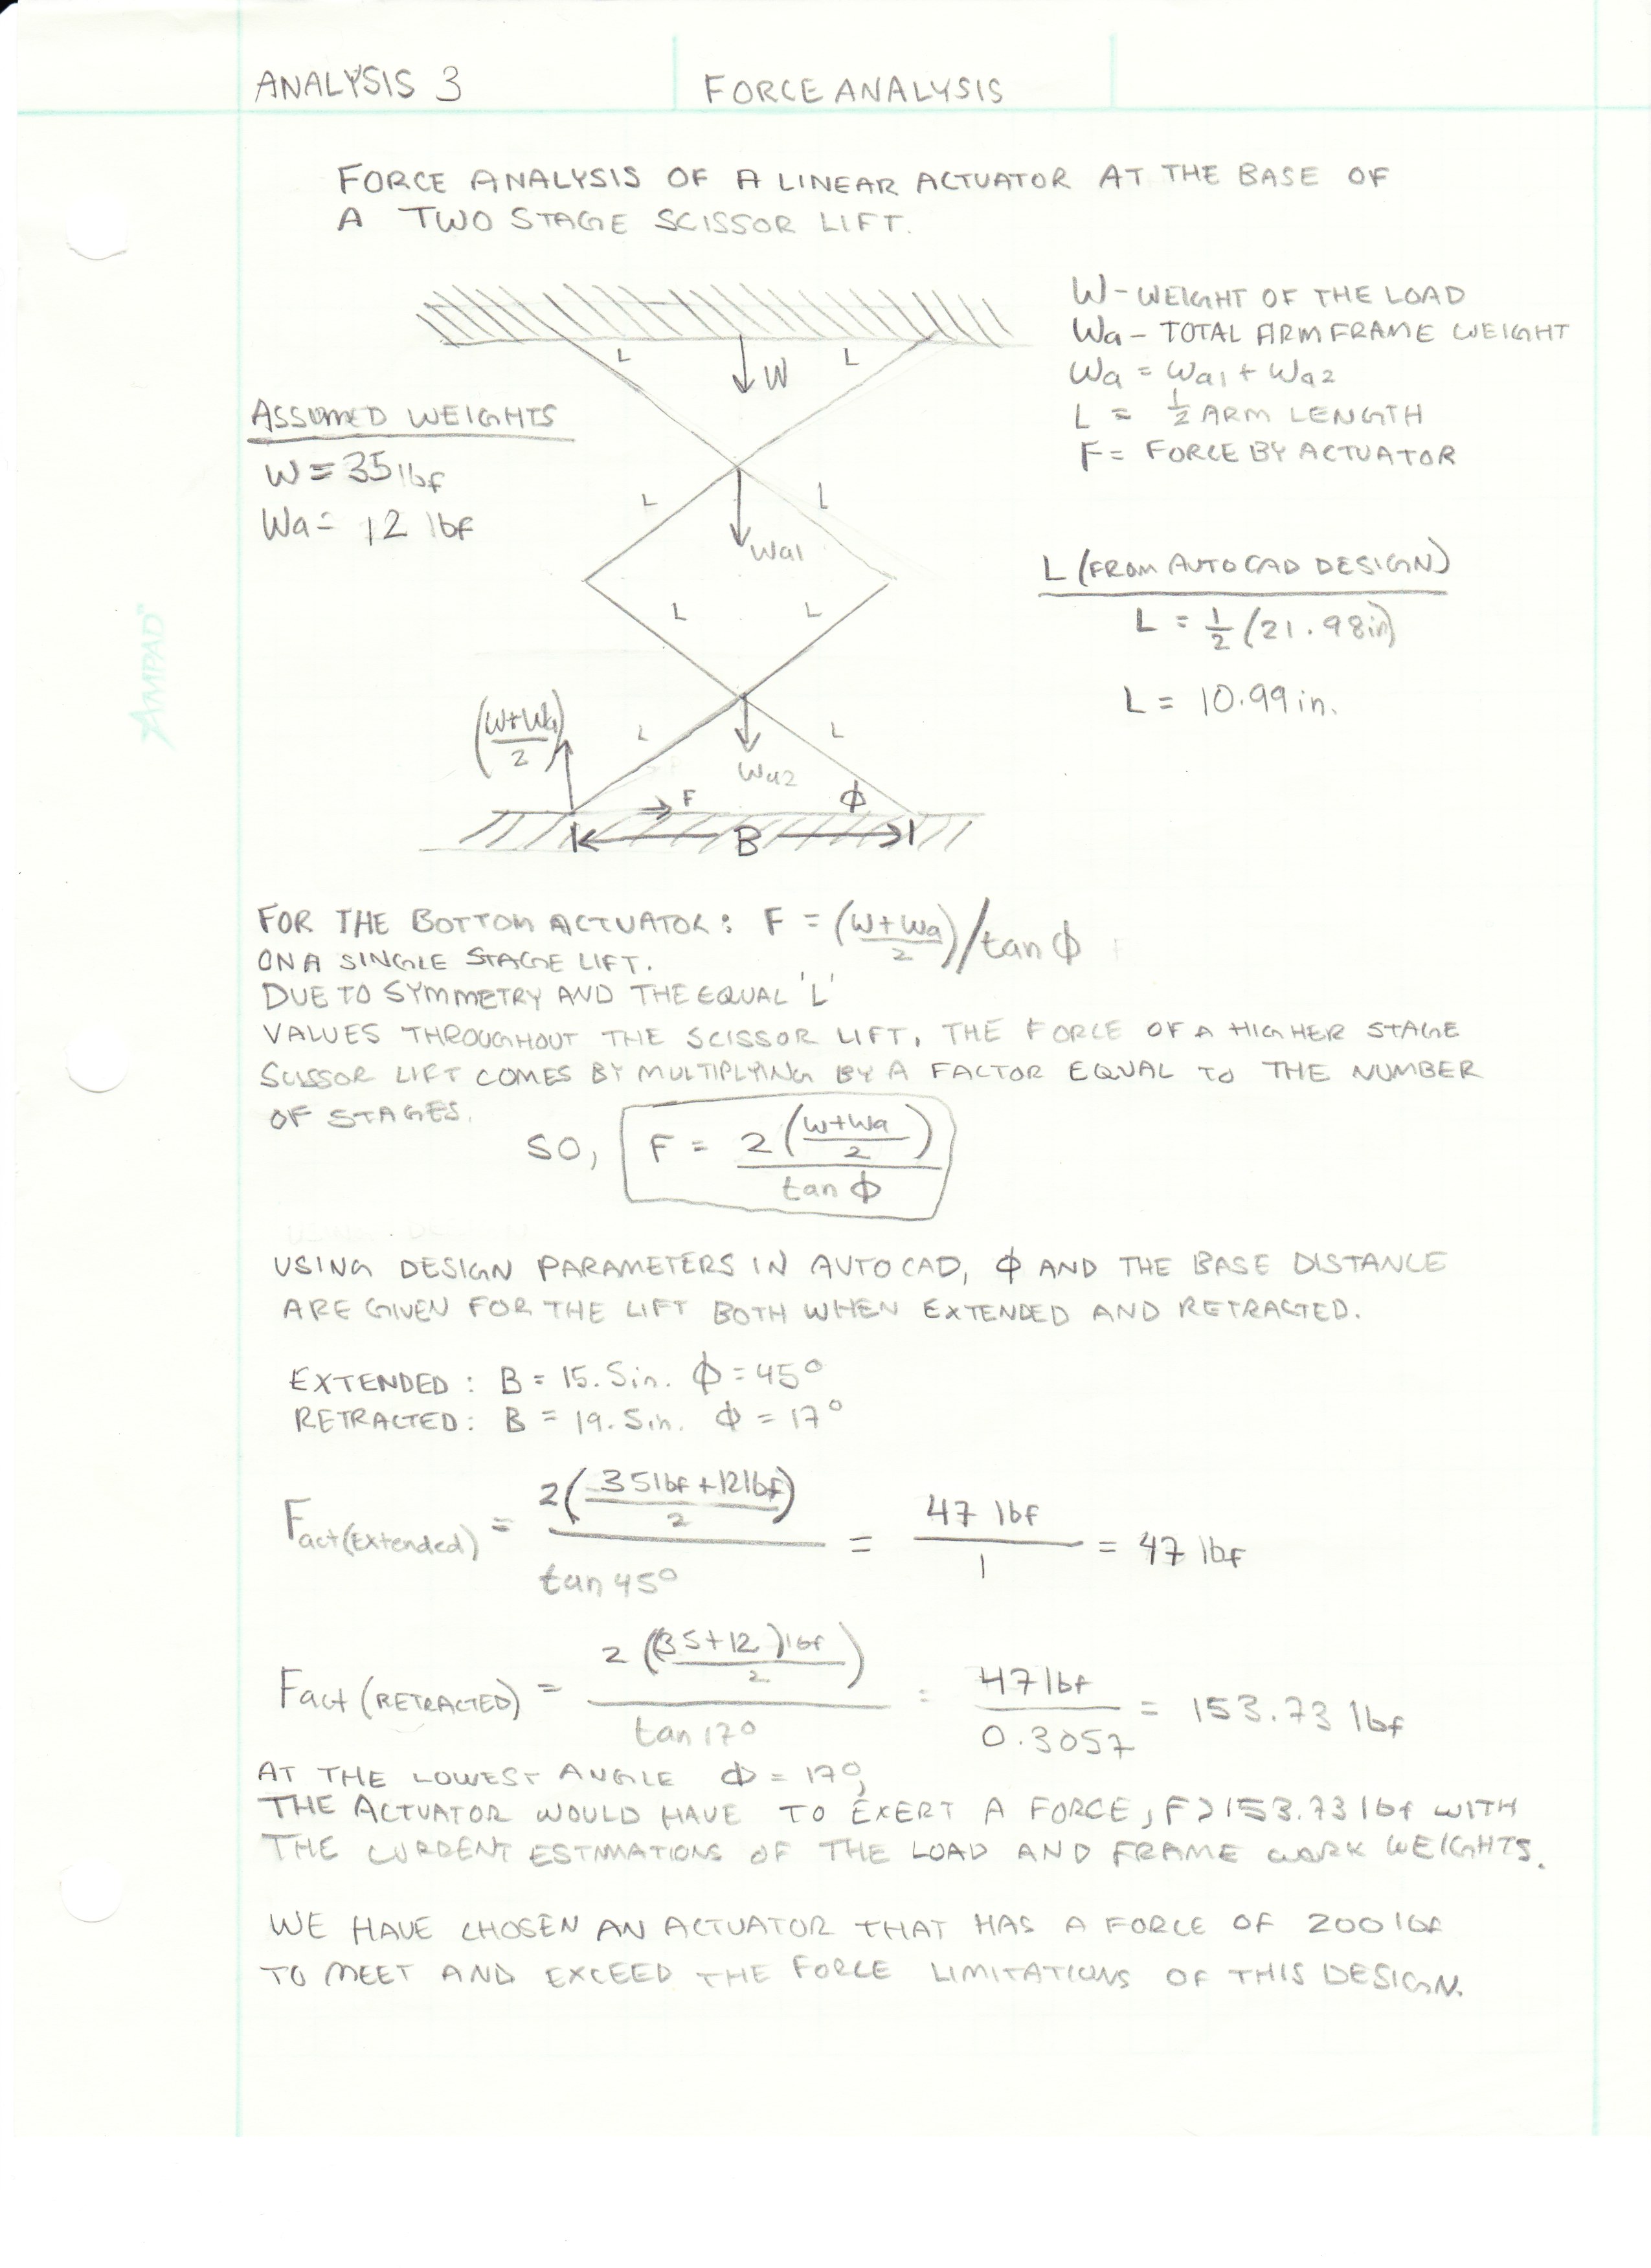 ANALYSIS 3 FORCE ANALYSIS
FORCE ANALYSIS OF A LINEAR ACTUATOR AT THE BASE OF
A TWO STAGE SCISSOR LIFT.
W - WEIGHT OF THE LOAD
Wa - TOTAL ARM FRAME WEIGHT
Wa = Wa1 + Wa2
L = 1/2 ARM LENGTH
F = FORCE BY ACTUATOR
L L
W
ASSUMED WEIGHTS
W = 35 lbf
Wa = 12 lbf
L L
Wa1
L (FROM AUTOCAD DESIGN)
L = 1/2 (21.98in)
L = 10.99 in.
L L
AMPAD™
((W+Wa)/2)
L L
Wa2
F φ
B
FOR THE BOTTOM ACTUATOR: F = ((W+Wa)/2)/tan φ
ON A SINGLE STAGE LIFT.
DUE TO SYMMETRY AND THE EQUAL 'L'
VALUES THROUGHOUT THE SCISSOR LIFT, THE FORCE OF A HIGHER STAGE
SCISSOR LIFT COMES BY MULTIPLYING BY A FACTOR EQUAL TO THE NUMBER
OF STAGES.
SO, F = 2((W+Wa)/2) / tan φ
USING DESIGN PARAMETERS IN AUTOCAD, φ AND THE BASE DISTANCE
ARE GIVEN FOR THE LIFT BOTH WHEN EXTENDED AND RETRACTED.
EXTENDED: B = 15.5in. φ = 45°
RETRACTED: B = 19.5in. φ = 17°
Fact(Extended) = 2((35lbf + 12lbf)/2) / tan 45° = 47 lbf / 1 = 47 lbf
Fact (RETRACTED) = 2((35+12)lbf/2) / tan 17° = 47 lbf / 0.3057 = 153.73 lbf
AT THE LOWEST ANGLE φ = 17°,
THE ACTUATOR WOULD HAVE TO EXERT A FORCE, F > 153.73 lbf WITH
THE CURRENT ESTIMATIONS OF THE LOAD AND FRAME WORK WEIGHTS.
WE HAVE CHOSEN AN ACTUATOR THAT HAS A FORCE OF 200 lbf
TO MEET AND EXCEED THE FORCE LIMITATIONS OF THIS DESIGN.